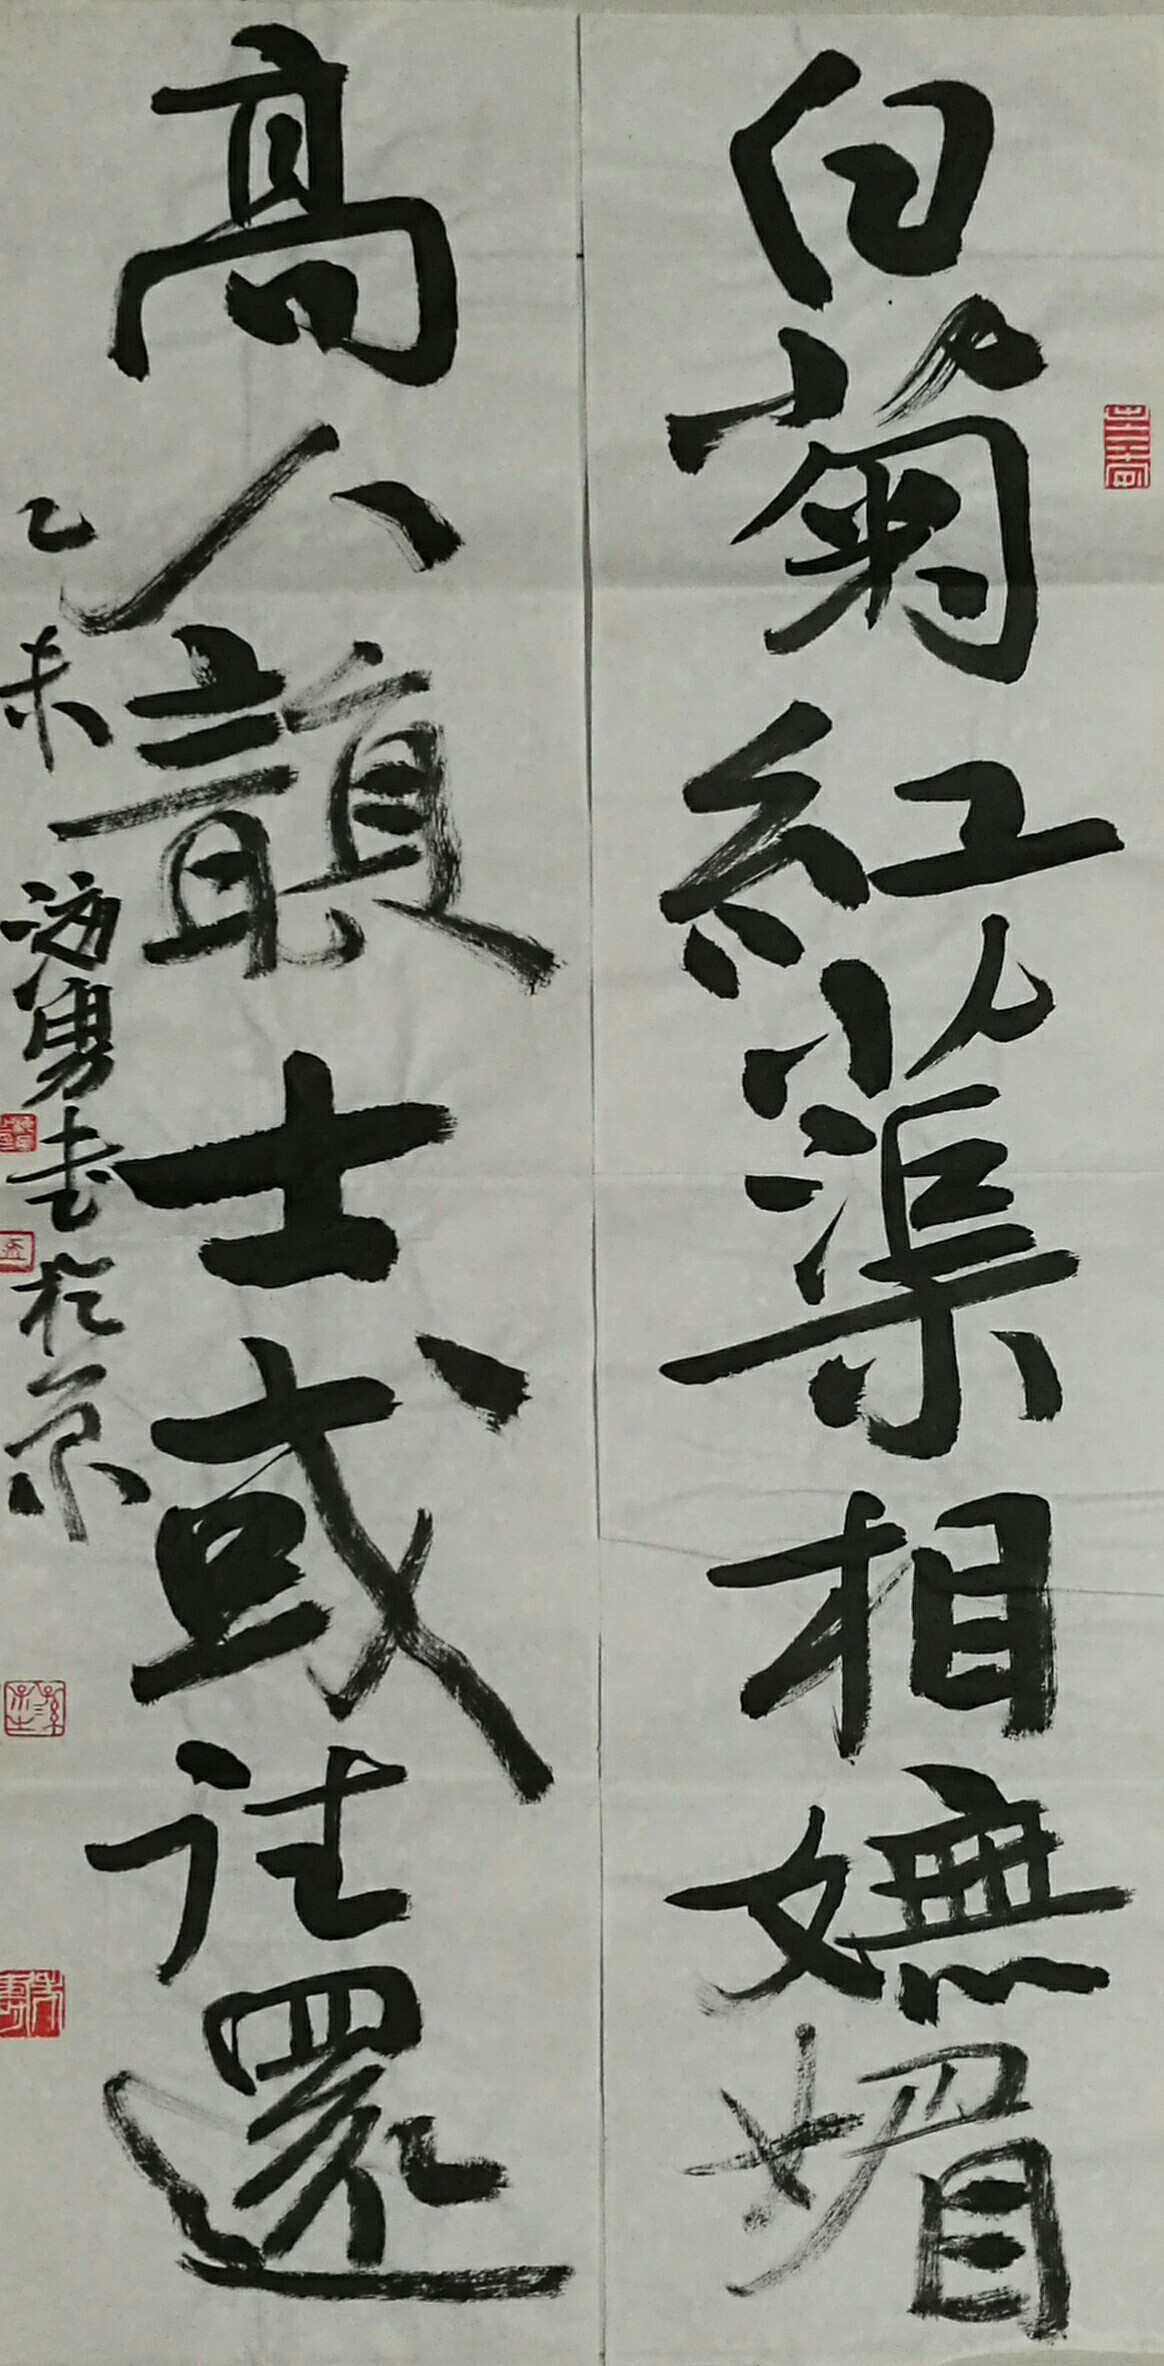 白菊紅蕖相嫵媚
高人韻士或往還
乙未海勇书於京